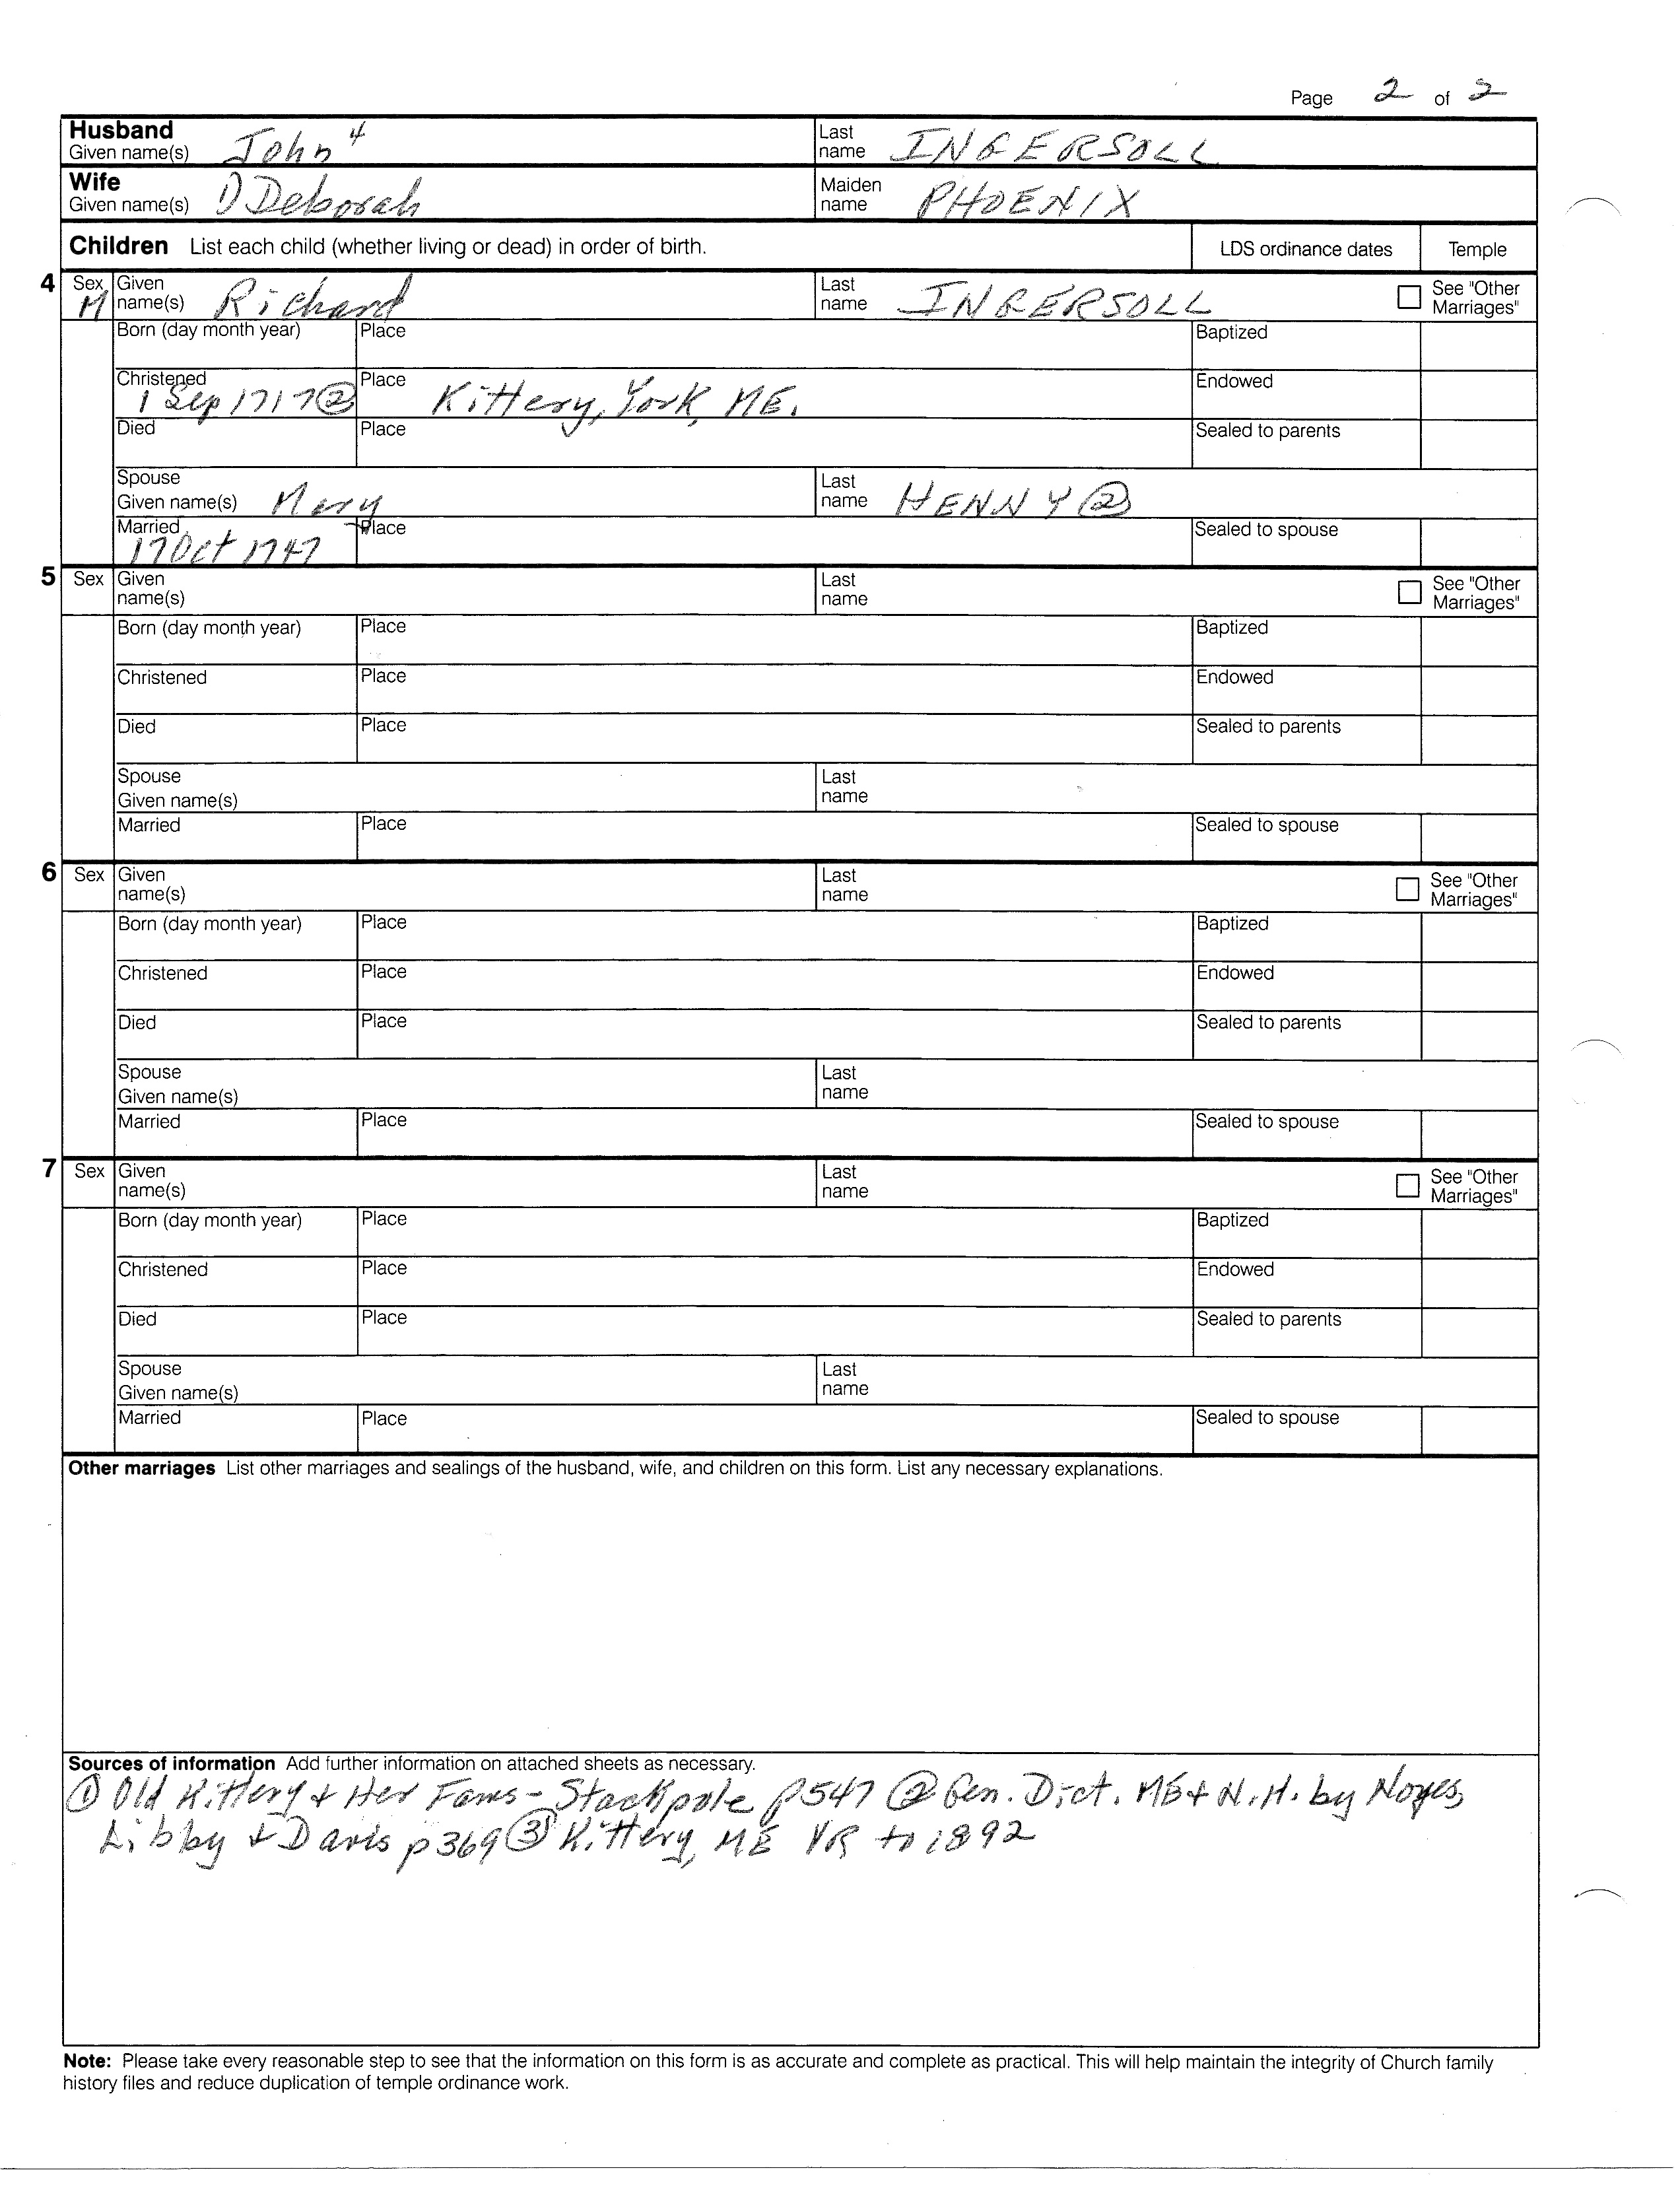 Page 2 of 2
Husband Given name(s) John⁴ Last name INGERSOLL
Wife Given name(s) 1) Deborah Maiden name PHOENIX
Children List each child (whether living or dead) in order of birth. LDS ordinance dates Temple
4 Sex M Given name(s) Richard Last name INGERSOLL See "Other Marriages"
Born (day month year) Place Baptized
Christened 1 Sep 1717 ② Place Kittery, York, ME. Endowed
Died Place Sealed to parents
Spouse Given name(s) Mary Last name HENNY ②
Married 17 Oct 1747 Place Sealed to spouse
5 Sex Given name(s) Last name See "Other Marriages"
Born (day month year) Place Baptized
Christened Place Endowed
Died Place Sealed to parents
Spouse Given name(s) Last name
Married Place Sealed to spouse
6 Sex Given name(s) Last name See "Other Marriages"
Born (day month year) Place Baptized
Christened Place Endowed
Died Place Sealed to parents
Spouse Given name(s) Last name
Married Place Sealed to spouse
7 Sex Given name(s) Last name See "Other Marriages"
Born (day month year) Place Baptized
Christened Place Endowed
Died Place Sealed to parents
Spouse Given name(s) Last name
Married Place Sealed to spouse
Other marriages List other marriages and sealings of the husband, wife, and children on this form. List any necessary explanations.
Sources of information Add further information on attached sheets as necessary.
① Old Kittery & Her Fams - Stackpole p547 ② Gen. Dict. ME & N.H. by Noyes,
Libby & Davis p369 ③ Kittery, ME VR to 1892
Note: Please take every reasonable step to see that the information on this form is as accurate and complete as practical. This will help maintain the integrity of Church family
history files and reduce duplication of temple ordinance work.